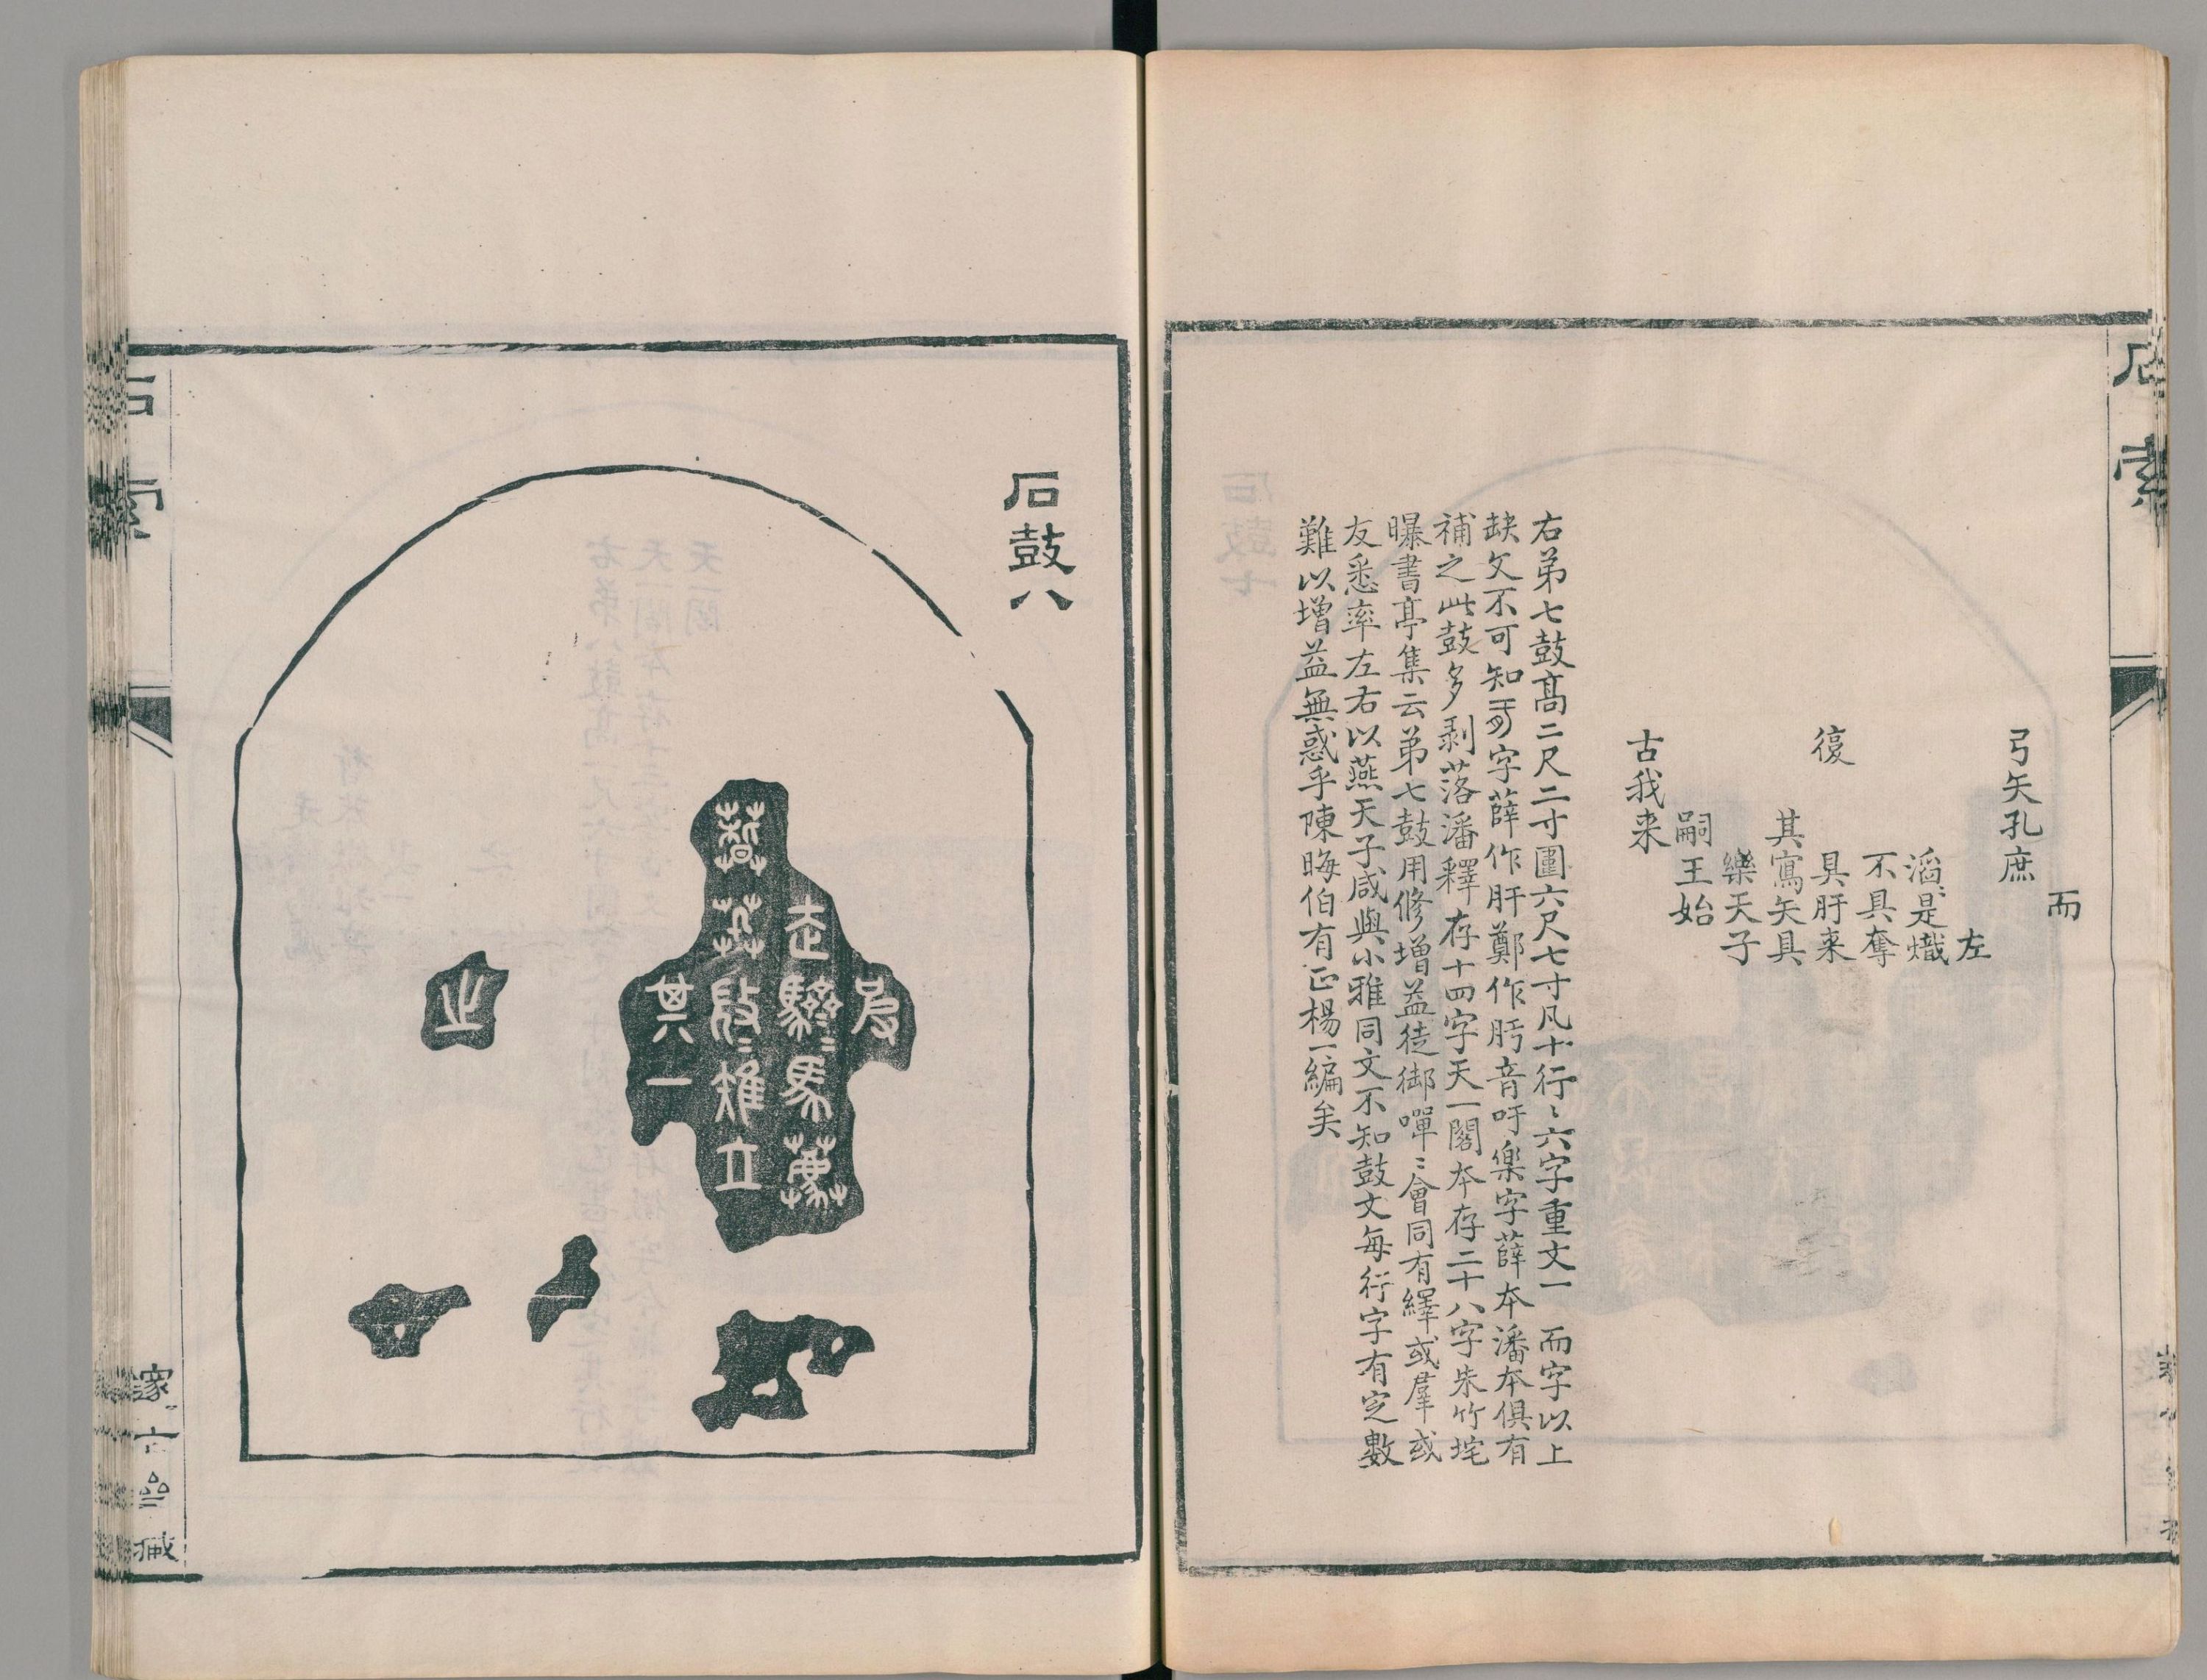 石索
而
弓矢孔庶
左
滔〻是熾
不具奪
復
具肝来
其寫矢具
樂天子
嗣王始
古我来
右弟七鼓高二尺二寸圍六尺七寸凡十行〻六字重文一 而字以上
缺文不可知 字薛作肝鄭作肟音吁樂字薛本潘本俱有
補之此鼓多剥落潘釋存十四字天一閣本存二十八字朱竹垞
曝書亭集云弟七鼓用修增益徒御嘽〻會同有繹或羣或
友悉率左右以燕天子咸與小雅同文不知鼓文每行字有定數
難以增益無惑乎陳晦伯有正楊一編矣
石鼓八
走馬
立
其一
止
石索
藏